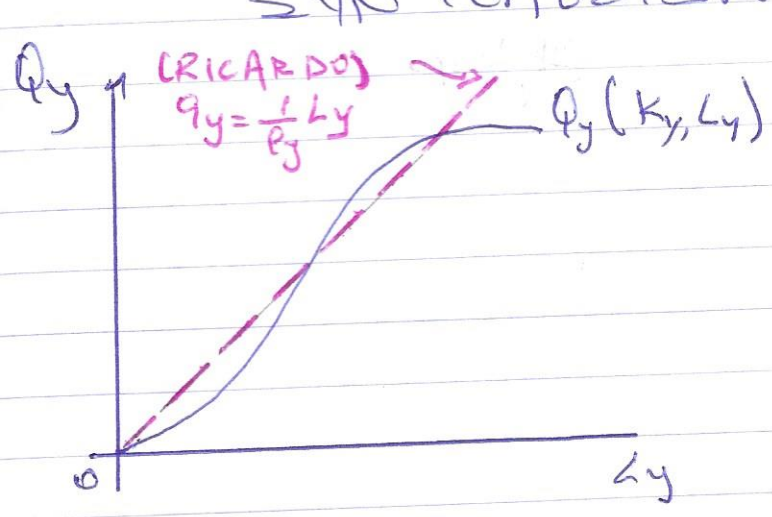 Qy
(RICARDO)
qy = 1/ρy Ly
Qy (Ky, Ly)
0
Ly